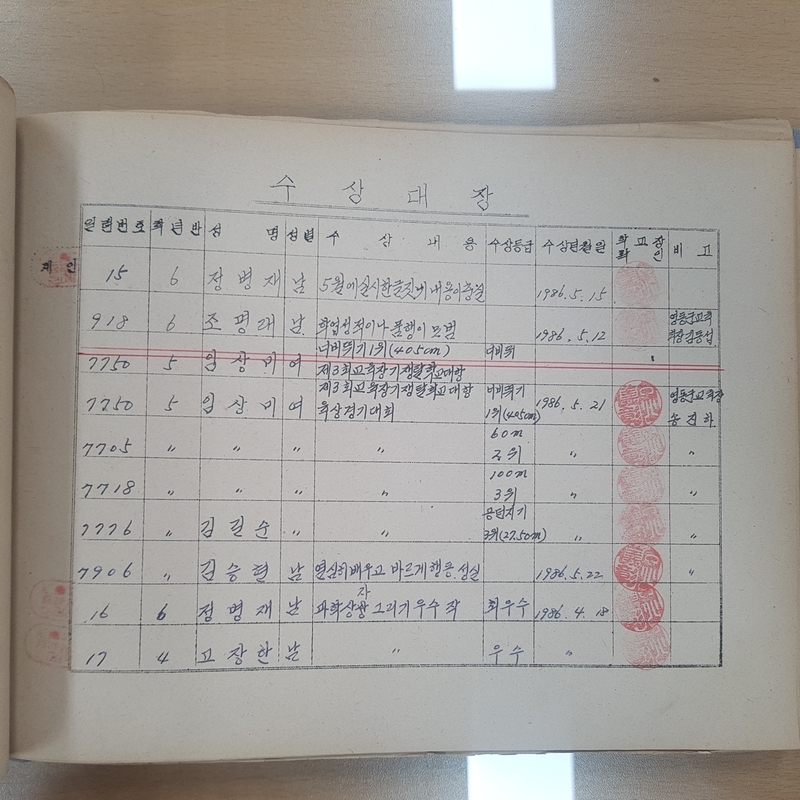 수 상 대 장
일련번호 학년반 성 명 성별 수 상 내 용 수상등급 수상년월일 학교장확인 비고
15 6 정병재 남 5월에 실시한 글짓기 내용이 충실 1986. 5. 15
918 6 조평래 남 학업성적이나 품행이 모범 1986. 5. 12 영동군교육
7750 5 임상미 여 너비뛰기 1위 (405cm) 너비뛰
제3회교육장기쟁탈학교대항
7750 5 임상미 여 제3회교육장기쟁탈학교대항 너비뛰기 1986. 5. 21 영동군교육장
육상경기대회 1위(405cm) 송
7705 〃 〃 〃 〃 60m
2위 〃 〃
7718 〃 〃 〃 〃 100m
3위 〃 〃
7776 〃 김길순 〃 〃 용던지기
3위(27.50m) 〃 〃
7906 〃 김승렬 남 열심히 배우고 바르게 행동. 성실 1986. 5. 22 〃
16 6 정병재 남 과학상상 그리기 우수 작 최우수 1986. 4. 18
자
17 4 고장한 남 〃 우수 〃